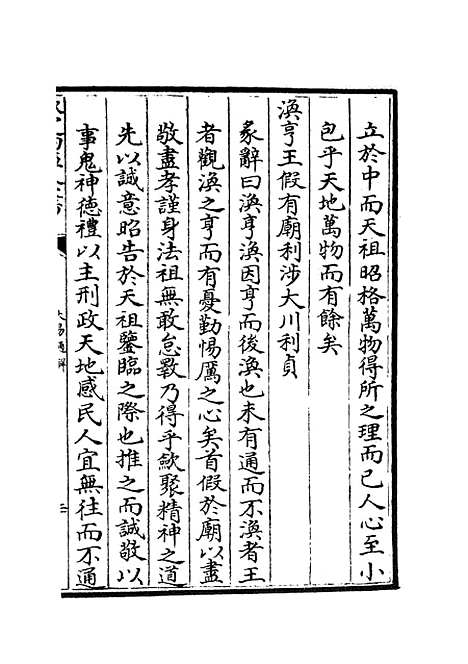 立於中而天祖昭格萬物得所之理而已人心至小
包乎天地萬物而有餘矣
渙亨王假有廟利涉大川利貞
彖辭曰渙亨渙因亨而後渙也未有通而不渙者王
者觀渙之亨而有憂勤惕厲之心矣首假於廟以盡
敬盡孝謹身法祖無敢怠斁乃得乎歛聚精神之道
先以誠意昭告於天祖鑒臨之際也推之而誠敬以
事鬼神德禮以主刑政天地感民人宜無往而不通
大易通解